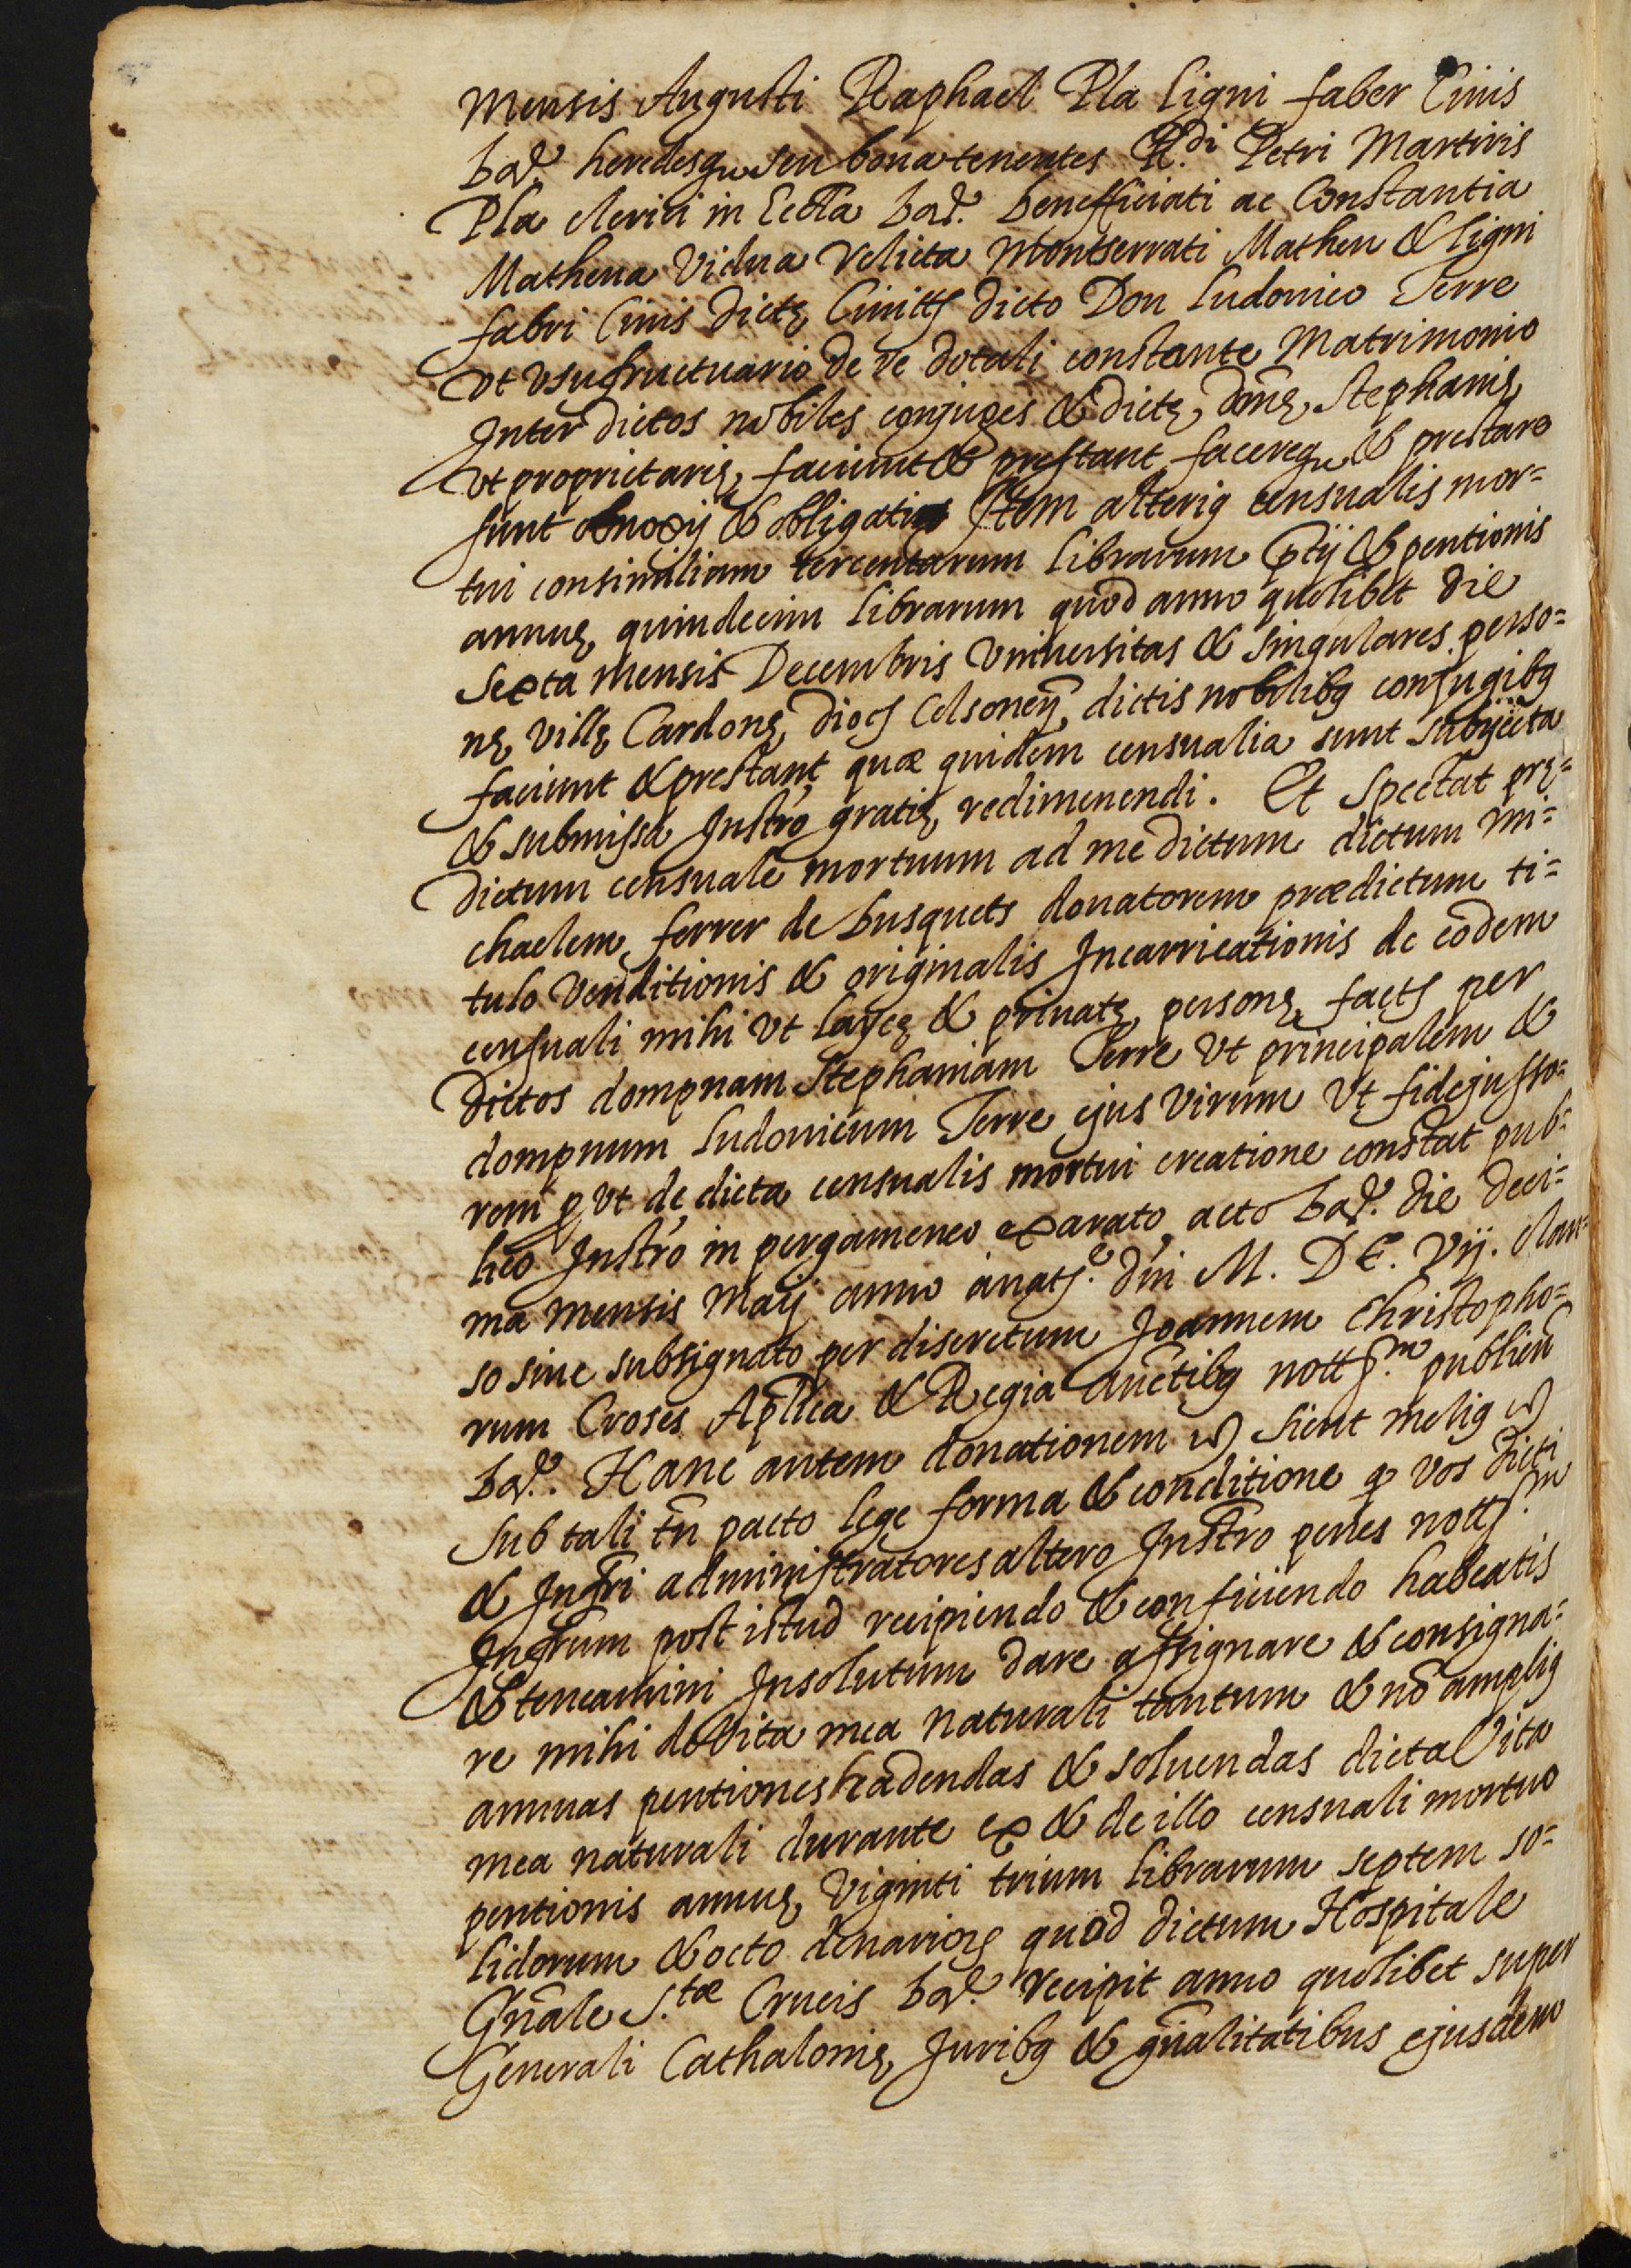 Mensis Augusti Raphael Pla ligni faber Ciuis
bar.e heredesque seu bona tenentes R.di Petri Martiris
Pla clerici in Eccla bar.e benefficiati ac Constantia
Mathena Vidua relicta Montserrati Matheu & ligni
fabri Ciuis dictę Ciuitts dicto Don ludouico Terre
vt vsufructuario de re dotali constante Matrimonio
Inter dictos nobiles conjuges & dictę donę Stephanię
vt proprietarię faciunt & prestant facereque & prestare
sunt obnoxij & obligati Item alterig censualis mor=
tui consimilium tercentarum librarum ptij & pentionis
annuę quindecim librarum quod anno quolibet die
Sexta mensis Decembris Vniuersitas & singulares perso=
nę villę Cardonę diocs Celsoneñ dictis nobilibg conjugibg
faciunt & prestant quæ quidem censualia sunt subjecta
& submissa Instro gratię redimenendi. Et Spectat prę=
dictum censuale mortuum ad me dictum dictum Mi=
chaelem ferrer de busquets donatorem prædictum ti=
tulo Venditionis & originalis Incarricationis de eodem
censuali mihi vt laycę & priuatę personę facts per
dictos dompnam Stephaniam Terre vt principalem &
dompnum ludouicum Terre ejus virum vt fidejusso=
rem p vt de dicta censualis mortui creatione constat pub=
lico Instro in pergameneo exarato, acto bar.e die deci=
ma mensis Maij anno ànats.e dñi M. DC. vij. clau=
so siue subsignato per discretum Joannem Christopho=
rum Croses Aplica & Regia auctibg notts.m publicu
bar.e. Hanc autem donationem &c sicut melig &c
Sub tali tñ pacto lege forma & conditione q vos dicti
& Infri administratores altero Instro penes notts.m
Infrum post istud recipiendo & conficiendo habeatis
& teneamini Insolutum dare assignare & consigna=
re mihi de vita mea naturali tantum & nõ amplig
annuas pentiones hadendas & soluendas dicta Vita
mea naturali durante ex & de illo censuali mortuo
pentionis annuę Viginti trium librarum septem so=
lidorum & octo denariors quod dictum Hospitale
Gñale S.tæ Crucis bar.e recipit anno quolibet super
Generali Cathalonię Juribg & gñalitatibus ejusdem